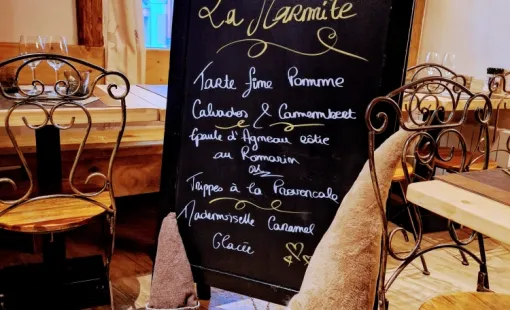 La Marmite
Tarte fine Pomme
Calvados & Camembert
Epaule d'Agneau rôtie
au Romarin
ou
Trippes à la Provencale
Mademoiselle Caramel
Glacée